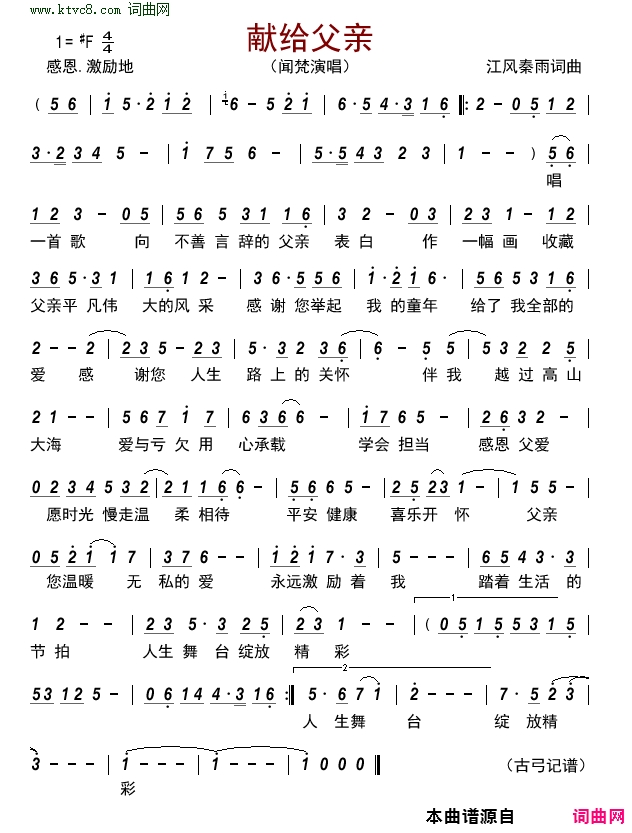 www.ktvc8.com 词曲网
1=#F 4/4
献给父亲
感恩.激励地
(闻梵演唱)
江风秦雨词曲
( 5 6 | 1 5·2 1 2 | 6 - 5 2 1 | 6 5 4·3 1 6 |: 2 - 0 5 1 2 |
3·2 3 4 5 - | 1 7 5 6 - | 5·5 4 3 2 3 | 1 - - ) 5 6 |
唱
1 2 3 - 0 5 | 5 6 5 3 1 1 6 | 3 2 - 0 3 | 2 3 1 - 1 2 |
一首 歌 向 不善 言 辞的 父亲 表 白 作 一幅 画 收藏
3 6 5·3 1 | 1 6 1 2 - | 3 6·5 5 6 | 1·2 1 7· | 5 6 5 3 1 6 |
父亲平 凡伟 大的风 采 感 谢您举起 我 的童年 给了 我全部的
2 - - 2 | 2 3 5 - 2 5 | 5·3 3 2 3 6 | 6· - 5 5 | 5 3 2 2 5 |
爱 感 谢您 人生 路 上 的 关怀 伴 我 越 过 高 山
2 1 - - | 5 6 7 1 7 | 6 3 6 6 - | 1 7 6 5 - | 2 6 5 - |
大海 爱与亏 欠 用 心承载 学会 担当 感恩 父爱
0 2 3 4 5 3 2 | 2 1 1 6 6 - | 5 6 6 5 - | 2 5 2 3 1 - | 1 5 5 - |
愿时光 慢走温 柔 相待 平安 健康 喜乐开 怀 父亲
0 5 2 1 1 7 | 3 7 6 - - | 0 2 1 1 7· 3 | 6 5 4 3·3· |
您温暖 无 私的 爱 永远激 励 着 我 踏着 生活 的
1 2 - - | 2 2 3 5·3 2 5 | 2 3 1 - | ( 0 5 1 5 5 3 1 |
1
节 拍 人生 舞 台 绽放 精 彩
5 3 1 2 5 - | 0 6 1 4 4·3 1 6 :| 5·6 7 1 | 2 - - - | 7·5 2 3 |
2
人 生舞 台 绽 放精
3 - - - | 1 - - - | 1 - - - | 1 0 0 0 ‖
彩
(古弓记谱)
本曲谱源自 词曲网